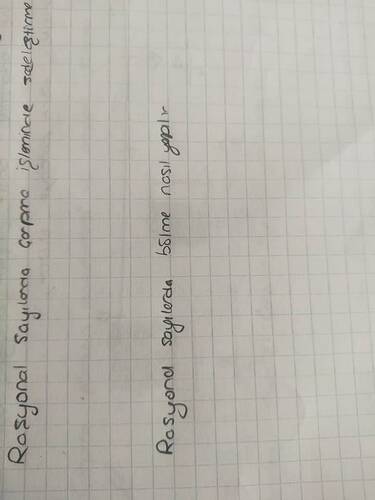 Rasyonal sayılarda çarpma işleminde sadeleştirme
Rasyonal sayılarda bölme nasıl yapılır